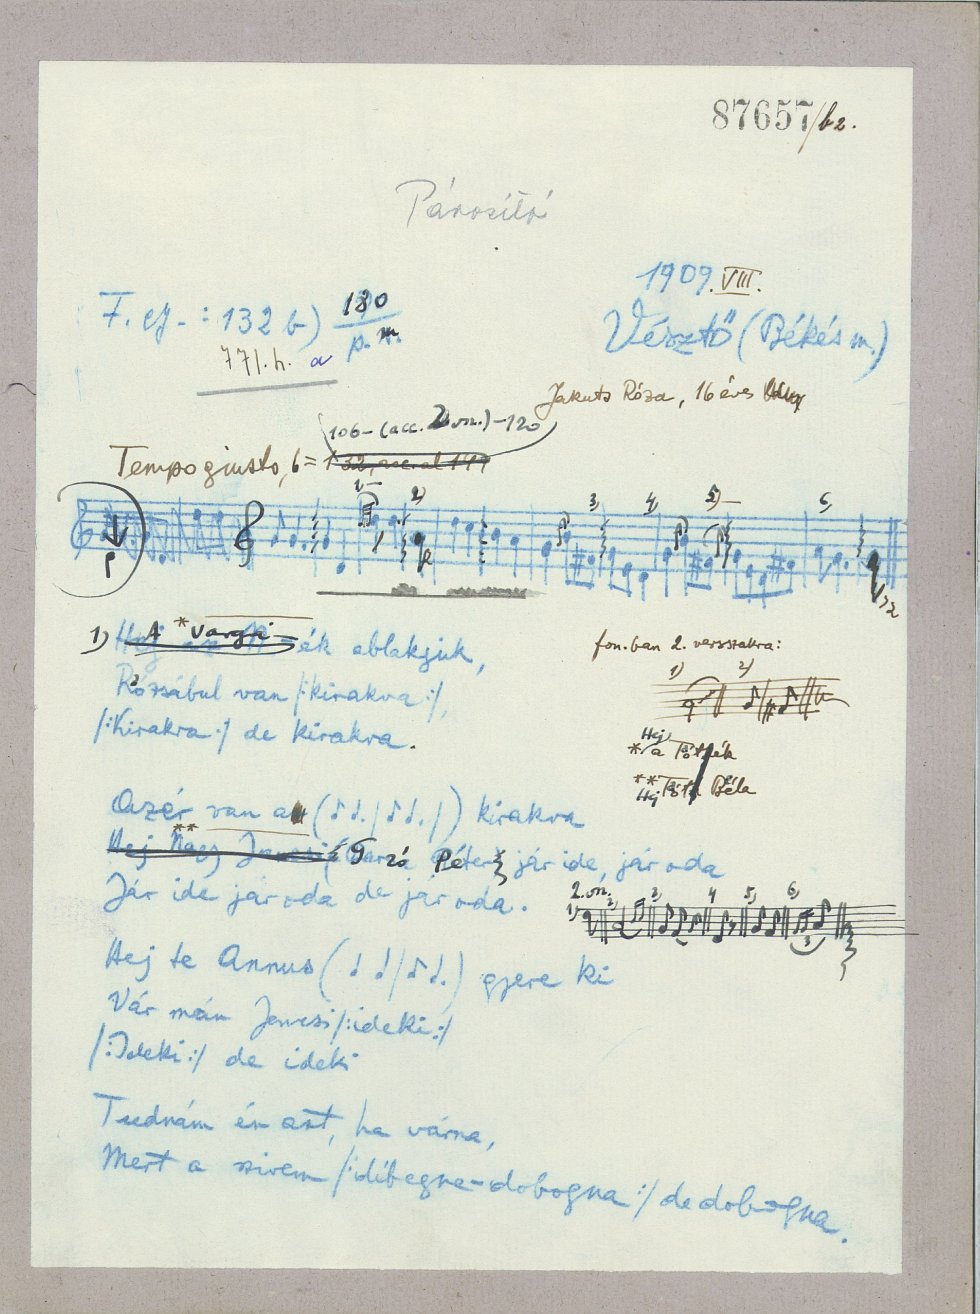 87657/b2.
Párosító
1909. VIII.
F. gy. : 132 b) 180
p. m.
Vésztő (Békés m.)
771. h. a
Jakuts Róza, 16 éves
106 – (acc. 2. vsz.) – 120
Tempo giusto,
1) 2) 3) 4) 5) 6)
1) A *Vargi ék ablakjuk,
Rózsábul van /:kirakva:/,
/:Kirakra:/ de kirakva.
fon.ban 2. versszakra:
1) 2)
Hej
* a Tóték
** Tóth Béla
Hej
Azér van a ( ) kirakva
** Hej Nagy Jancsi Turzó Péter jár ide, jár oda
Jár ide jár oda de jár oda.
2. vsz.
1) 2) 3) 4 5) 6)
3
Hej te Annus ( ) gyere ki
Vár mán Jancsi /:ideki:/
/:Ideki:/ de ideki
Tudnám én azt, ha várna,
Mert a szivem /:dibegne-dobogna:/ de dobogna.